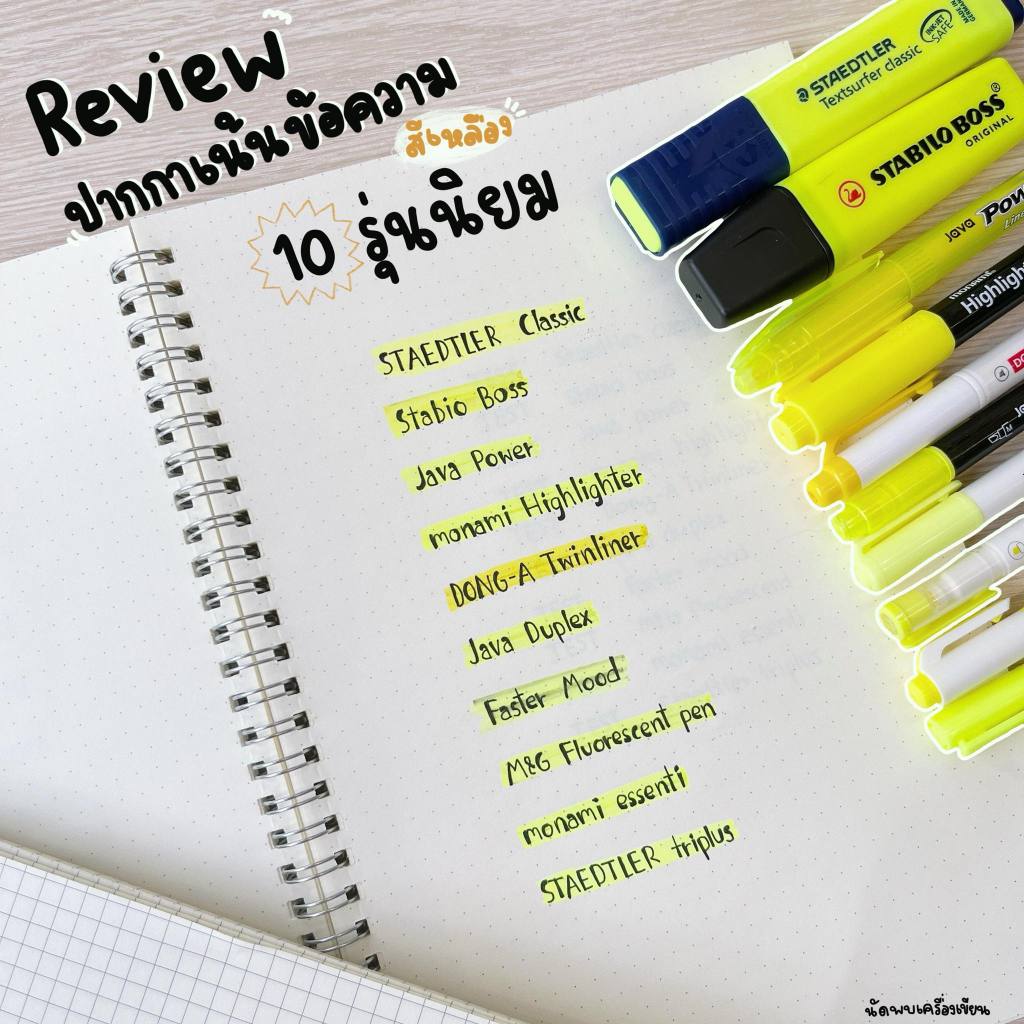 Review
ปากกาเน้นข้อความ
สีเหลือง
10 รุ่นนิยม
STAEDTLER Classic
Stabio Boss
Java Power
monami Highlighter
DONG-A Twinliner
Java Duplex
Faster Mood
M&G Fluorescent pen
monami essenti
STAEDTLER triplus
STAEDTLER
Textsurfer classic
INK-JET
SAFE
MADE IN
GERMANY
STABILO BOSS®
ORIGINAL
Java
monami
นัดพบเครื่องเขียน